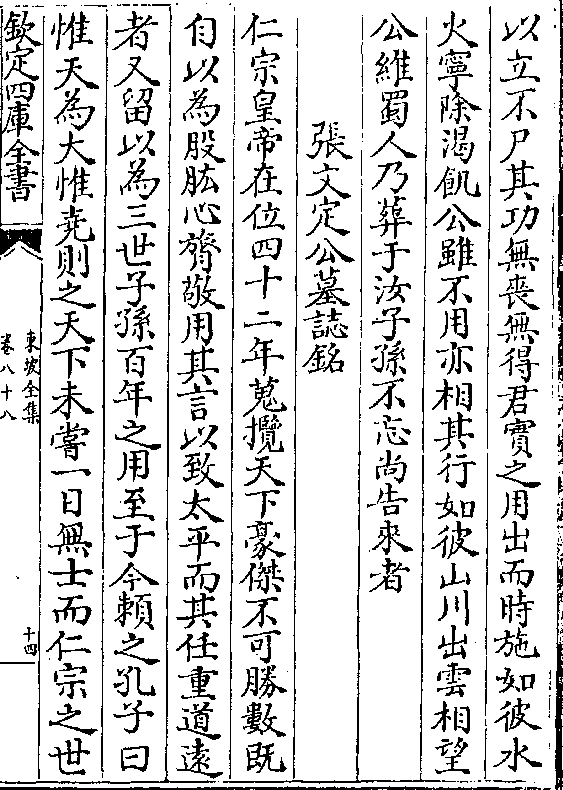 以立不尸其功無喪無得君實之用出而時施如彼水
火寧除渴飢公雖不用亦相其行如彼山川出雲相望
公維蜀人乃葬于汝子孫不忘尚告來者
張文定公墓誌銘
仁宗皇帝在位四十二年蒐攬天下豪傑不可勝數既
自以為股肱心膂敬用其言以致太平而其任重道遠
者又留以為三世子孫百年之用至于今賴之孔子曰
惟天為大惟堯則之天下未嘗一日無士而仁宗之世
欽定四庫全書
東坡全集
卷八十八
十四